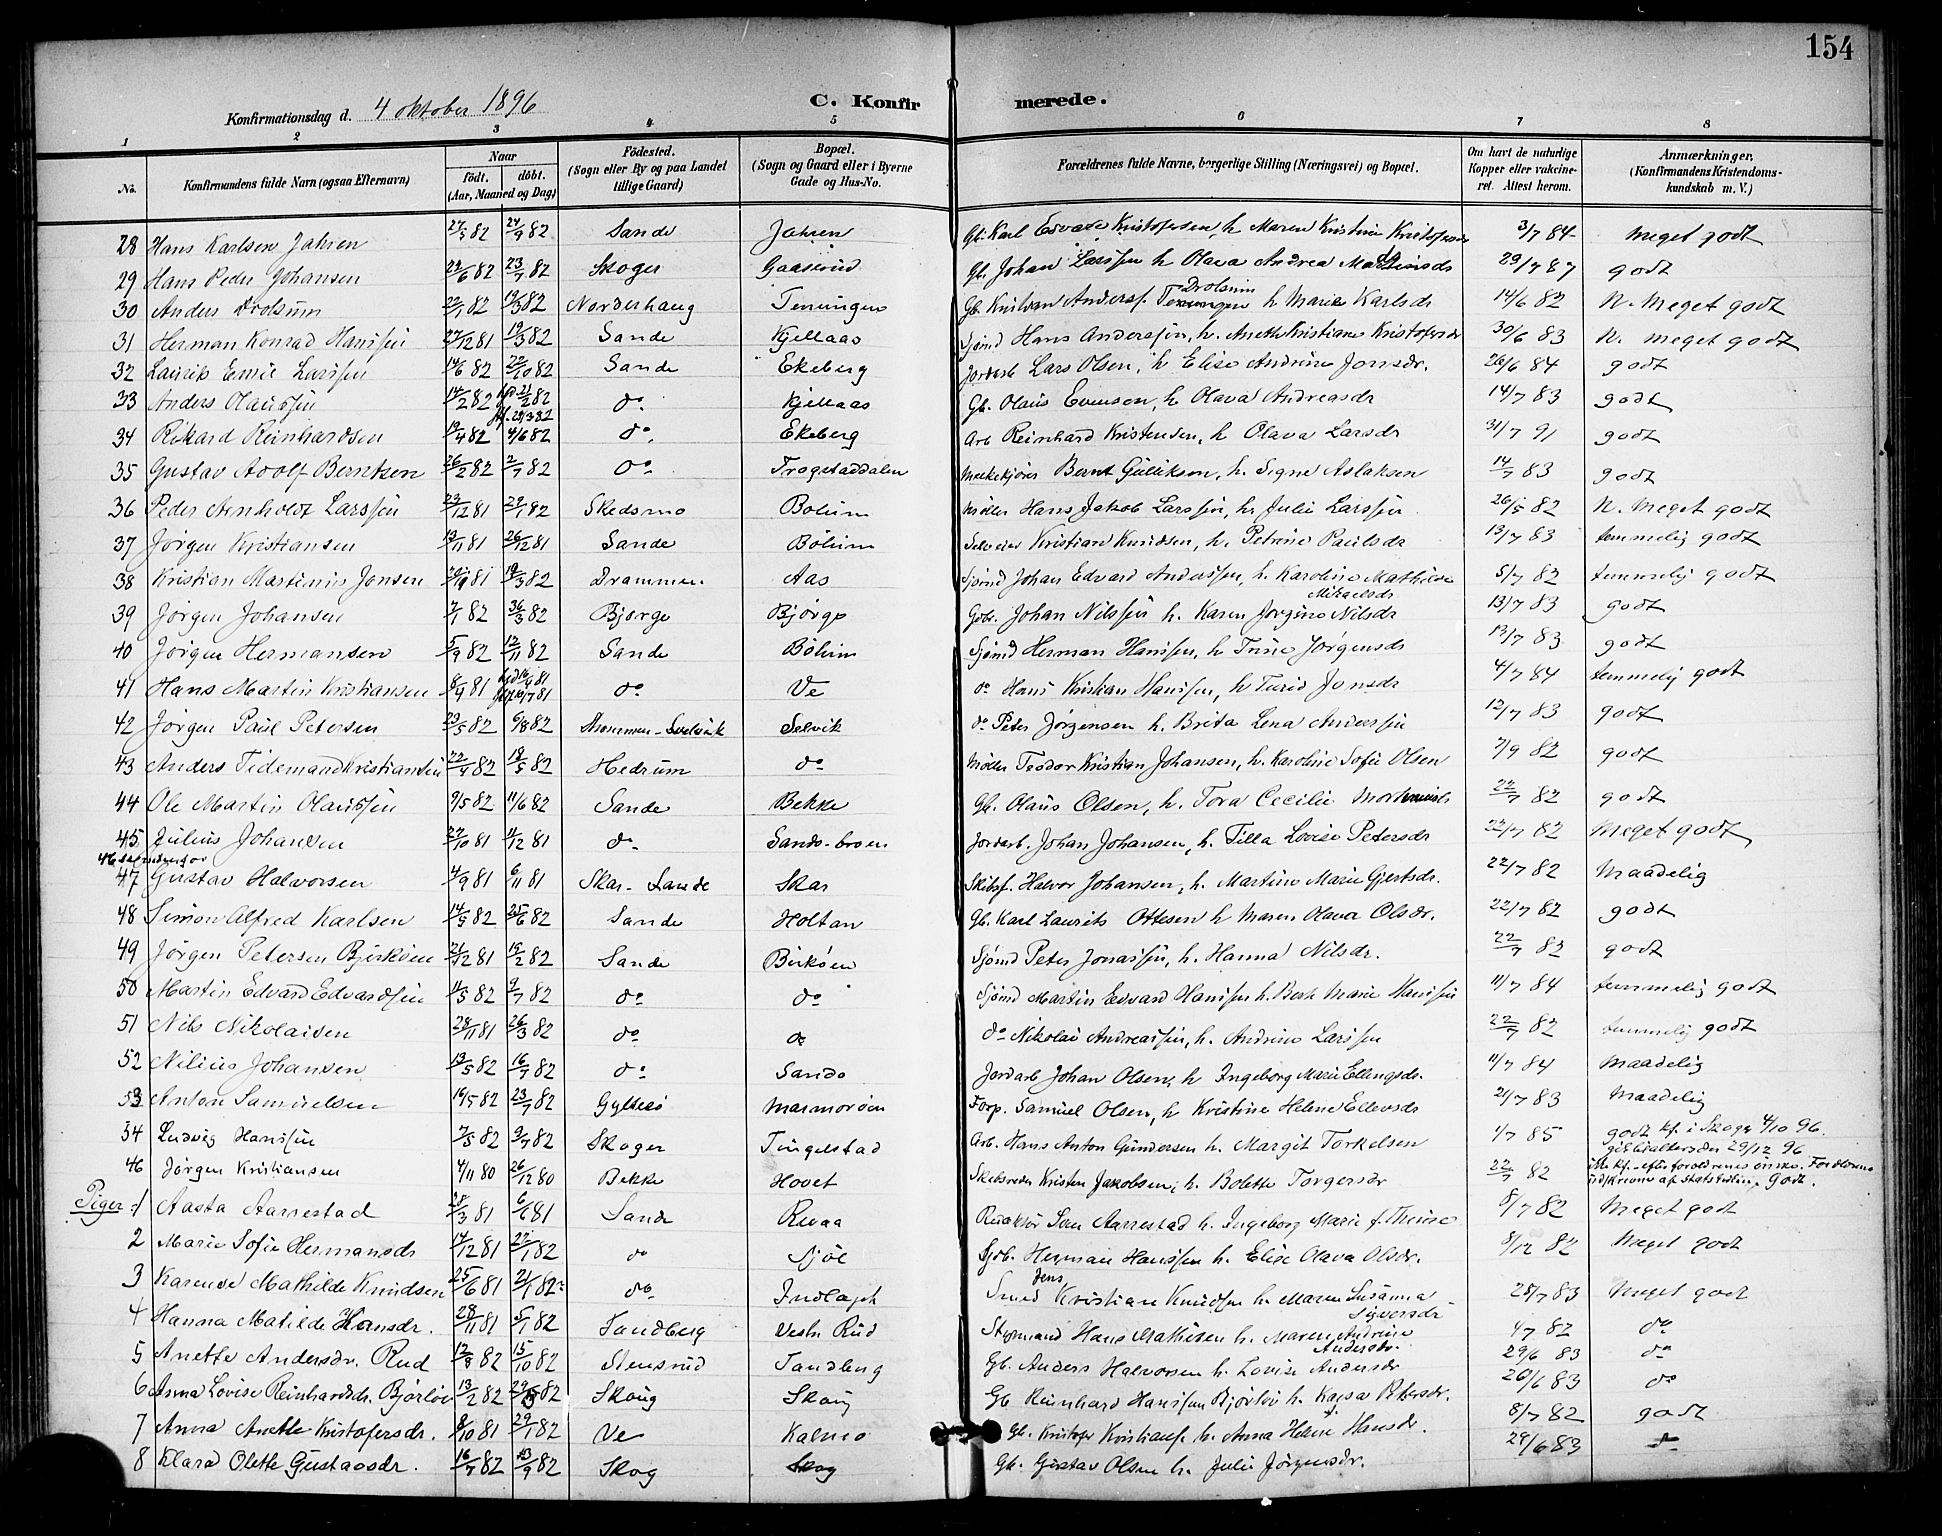 154
Konfirmationsdag d. 4 oktober 1896 C. Konfirmerede.
1 2 3 4 5 6 7 8
No. Konfirmandens fulde Navn (ogsaa Efternavn) Naar født. døbt. (Aar, Maaned og Dag) Fødested. (Sogn eller By og paa Landet tillige Gaard) Bopæl. (Sogn og Gaard eller i Byerne Gade og Hus-No. Forældrenes fulde Navne, borgerlige Stilling (Næringsvei) og Bopæl. Om havt de naturlige Kopper eller vakcineret. Attest herom. Anmærkninger. (Konfirmandens Kristendomskundskab m. V.)
28 Hans Karlsen Jahren 27/5 82 24/9 82 Sande Jahren Gb. Karl Edvard Kristofersen, h. Maren Kristine Kristofersen 3/7 84 Meget godt
29 Hans Peder Johansen 22/6 82 23/7 82 Skoger Gaaserud Gb. Johan Larssen h. Olava Andrea 29/7 87 godt
30 Anders Drolsum 22/1 82 19/3 82 Norderhaug Temingen Gb. Kristian Anders. Drolsum h. Marie Karlsdr 14/6 82 N. Meget godt
31 Herman Konrad Hanssen 27/12 81 19/3 82 Sande Kjellaas Sjømd Hans Anderssen, h. Anette Kristiane Kristofersdr 30/6 83 N. meget godt
32 Laurits Emil Larssen 14/6 82 22/10 82 Sande Ekeberg Jordarb Lars Olsen, h. Elise Andrine Jonsdr. 26/6 84 godt
33 Anders Olaussen 14/2 82 hjd 21/2 82 kf. 29/3 82 do. Kjellaas Gb. Olaus Evensen, h. Olava Andreasdr 14/7 83 godt
34 Rikard Reinhardsen 19/4 82 4/6 82 do. Ekeberg Arb Reinhard Kristensen, h Olava Larsdr 31/7 91 godt
35 Gustav Adolf Berntsen 26/2 82 2/7 82 do Trogstaddalen Melkekjører Bernt Gulliksen, h. Signe Aslaksen 14/7 83 godt
36 Peder Arnholdt Larssen 23/12 81 29/1 82 Skedsmo Bølum Møller Hans Jakob Larssen, h. Julie Larssen 26/5 82 N. Meget godt
37 Jørgen Kristiansen 19/11 81 26/12 81 Sande Bølum Selveier Kristian Knudsen, h. Petrine Paulsdr 13/7 83 temmelig godt
38 Kristian Martinus Jonsen 19/3 82 Drammen Aas Sjømd Johan Edvard Anderssen, h. Karoline Mathilde Mikaelsdr 5/7 82 temmelig godt
39 Jørgen Johansen 2/1 82 82 Bjørge Bjørge Gdbr. Johan Nilssen h. Karen Jorgine Nilsdr 13/7 83 godt
40 Jørgen Hermansen 5/9 82 12/11 82 Sande Bølum Sjømd Herman Hanssen, h. Trine Jørgensdr 13/7 83 godt
41 Hans Martin Kristiansen 8/4 81 hjd 16/4 81 do Ve do Hans Kristian Hanssen, h. Turid Jonsdr 4/7 84 temmelig godt
42 Jørgen Paul Petersen 23/5 82 6/8 82 Strømmen-Svelvik Selvik do Peter Jørgensen h. Brita Lena Anderssen 12/7 83 godt
43 Anders Tidemand Kristiansen 82 18/5 82 Hedrum do Møller Teodor Kristian Johansen, h. Karoline Sofie Olsen 7/9 82 godt
44 Ole Martin Olaussen 9/5 82 11/6 82 Sande Bekke Gb. Olaus Olsen, h. Tora Cecilie 22/7 82 godt
45 Julius Johansen 27/10 81 4/12 81 do Sande-broen Jordarb. Johan Johansen, h. Tilla Lovise Petersdr 22/7 82 Meget godt
46 se nedenfor
47 Gustav Halvorsen 4/9 81 6/11 81 Skar-Sande Skar Skibsf. Halvor Johansen, h. Martine Marie Gjertsdr. 22/7 82 Maadelig
48 Simon Alfred Karlsen 14/5 82 25/6 82 Sande Holtan Gb. Karl Laurits Ottesen h Maren Olava Olsdr. 22/7 82 godt
49 Jørgen Petersen Bjerkøen 21/12 81 19/2 82 Sande Birkøen Sjømd Peter Jonassen, h. Hanna Nilsdr. 22/7 82 godt
50 Martin Edvard Edvardsen 4/5 82 9/7 82 do do Sjømd Martin Edvard Hanssen h. Berte Marie Hanssen 11/7 84 temmelig godt
51 Nils Nikolaisen 28/11 81 26/3 82 do do do Nikolai Andreassen, h. Andrine Larssen 22/7 82 temmelig godt
52 Nilius Johansen 13/5 82 16/7 82 do Sande Jordarb Johan Olsen, h Ingeborg Marie Ellingsdr. 11/7 84 Maadelig
53 Anton Samuelsen 16/5 82 23/7 82 Marmorøen Forp. Samuel Olsen, h Kristine Helene Ellevsdr 21/7 83 Maadelig
34 Ludvig Hanssen 7/5 82 9/7 82 Skoger Tingelstad Arb. Hans Anton Gundersen h. Margit Torkelsen 1/7 85 godt kf. i Skoger 4/10 96
46 Jørgen Kristiansen 4/11 80 26/12 80 Bekke Hovet Skibsreder Kristen Jakobsen, h. Bolette Torgersdr 22/7 82 ikke kf. efter forældrenes ønske. Forældrene udskrevne af Statskirken. Godt.
Piger: 1 Aasta Aarrestad 28/3 81 6/6 81 Sande Revaa Redaktør Sven Aarrestad h. Ingeborg Marie f. 8/7 82 Meget godt
2 Marie Sofie Hermansdr 14/12 81 22/1 82 do Sjøl Gdb. Herman Hanssen h. Elise Olava Olsdr. 8/12 82 Meget godt
3 Karense Mathilde Knudsen 25/6 81 82 do Indlagt Smed Jens Kristian Knudsen h. Maren Susanna Syversdr 25/7 83 Meget godt
4 Hanna Matilde Hansdr. 28/11 81 5/1 82 Sandberg Vestr Rud Styrmand Hans Mathisen h. Maren Andrine Andersdr. 4/7 82 do
5 Anette Andersdr. Rud 12/8 82 15/10 82 Stensrud Sandberg Gb. Anders Halvorsen h. Lovise Andersdr 29/6 83 do
6 Anna Lovise Reinhardsdr. Bjørløv 13/2 82 82 Skoug Skoug Gb Reinhard Hanssen Bjørløv h. Kajsa Petersdr. 20/6 83 do
7 Anna Anette Kristofersdr. 8/10 81 29/1 82 Ve Kalmo Gb. Kristofer Kristians. h. Anna Helene Hansdr. 8/7 82 godt
8 Klara Olette Gustavsdr. 16/7 82 82 Skog Skog Gb. Gustav Olsen h. Julie Jørgensdr. 29/6 83 do